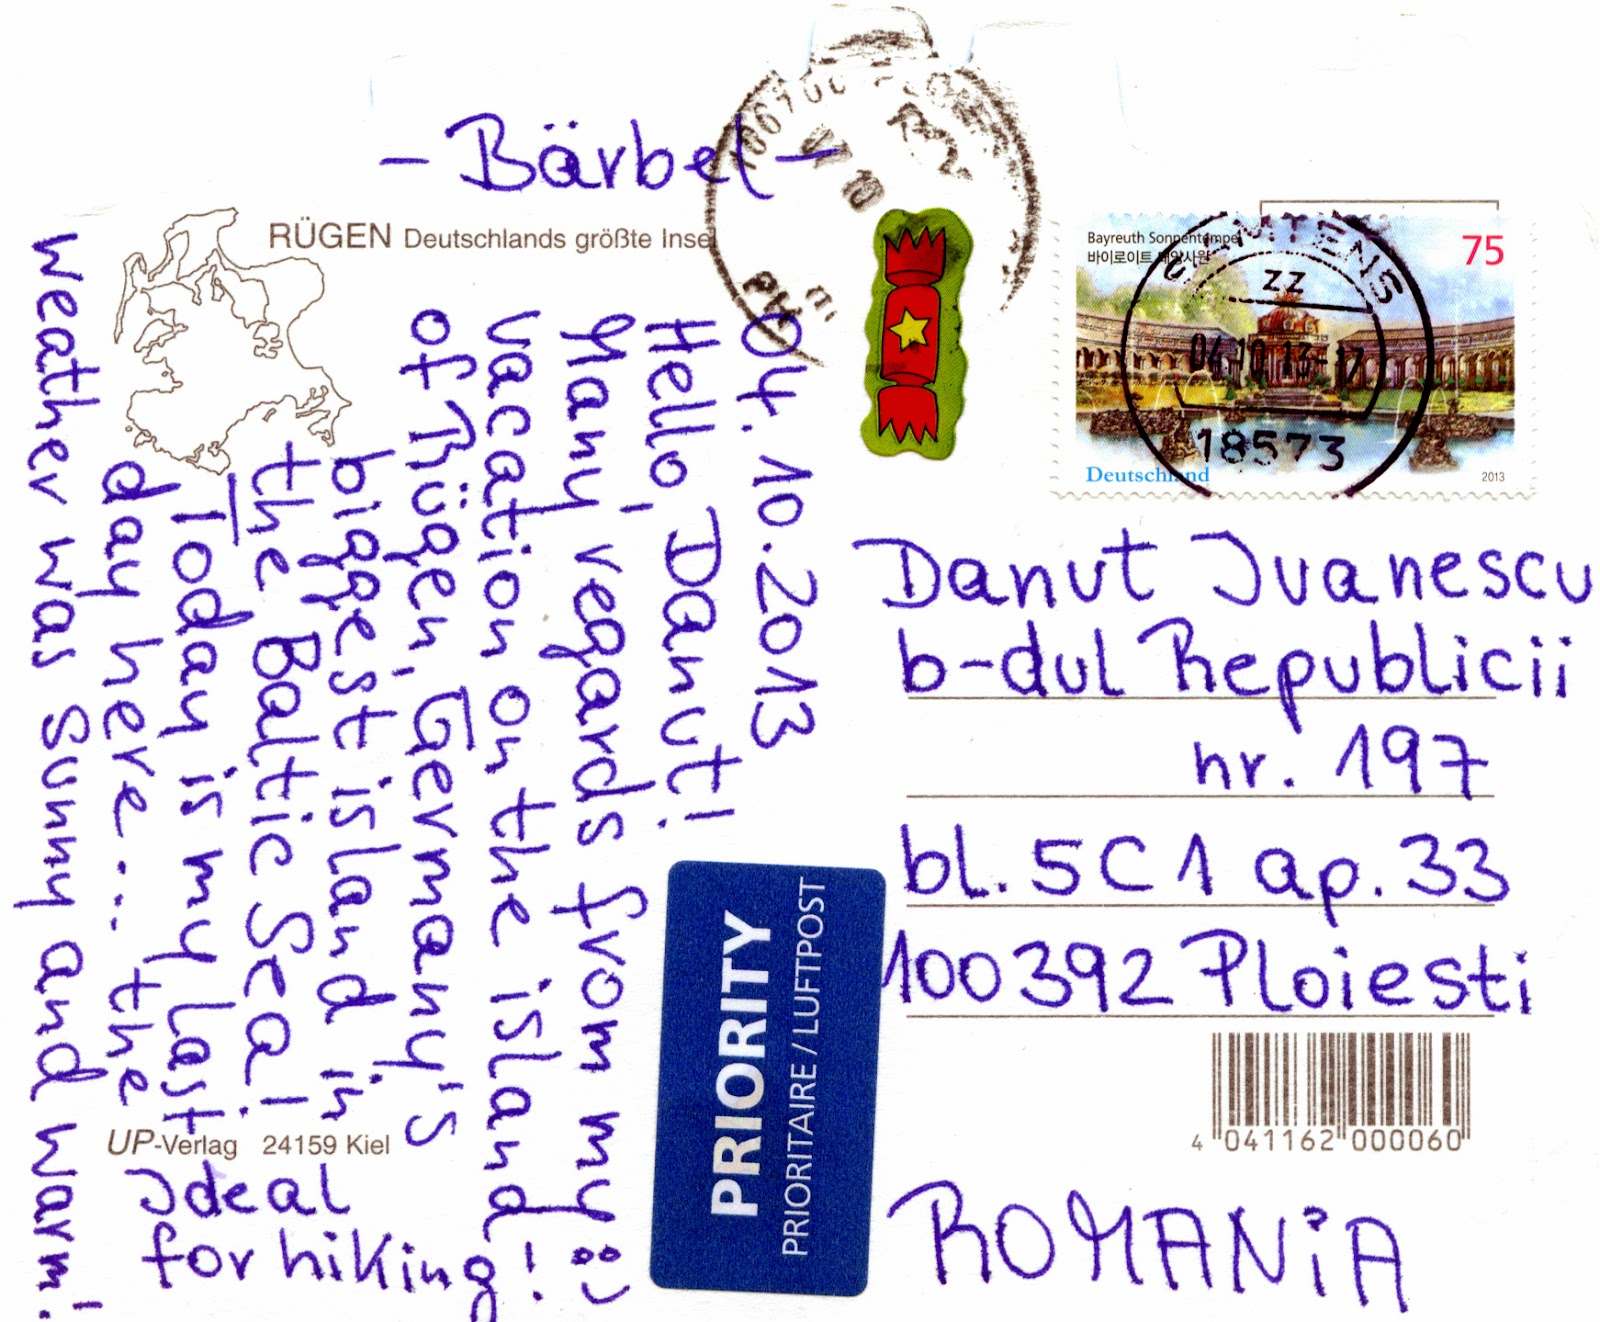 04.10.2013
Hello, Danut!
Many regards from my
vacation on the island
of Rügen, Germany's
biggest island in
the Baltic Sea!
Today is my last
day here... the
weather was sunny and warm!
Ideal
for hiking!
- Bärbel -
RÜGEN Deutschlands größte Insel
UP-Verlag 24159 Kiel
PRIORITY
PRIORITAIRE / LUFTPOST
Bayreuth Sonnentempel
바이로이트 태양사원
75
Deutschland
2013
ZZ
04.10.13-17
18573
Danut Ivanescu
b-dul Republicii
nr. 197
bl. 5C1 ap. 33
100392 Ploiesti
4 041162 000060
ROMANiA